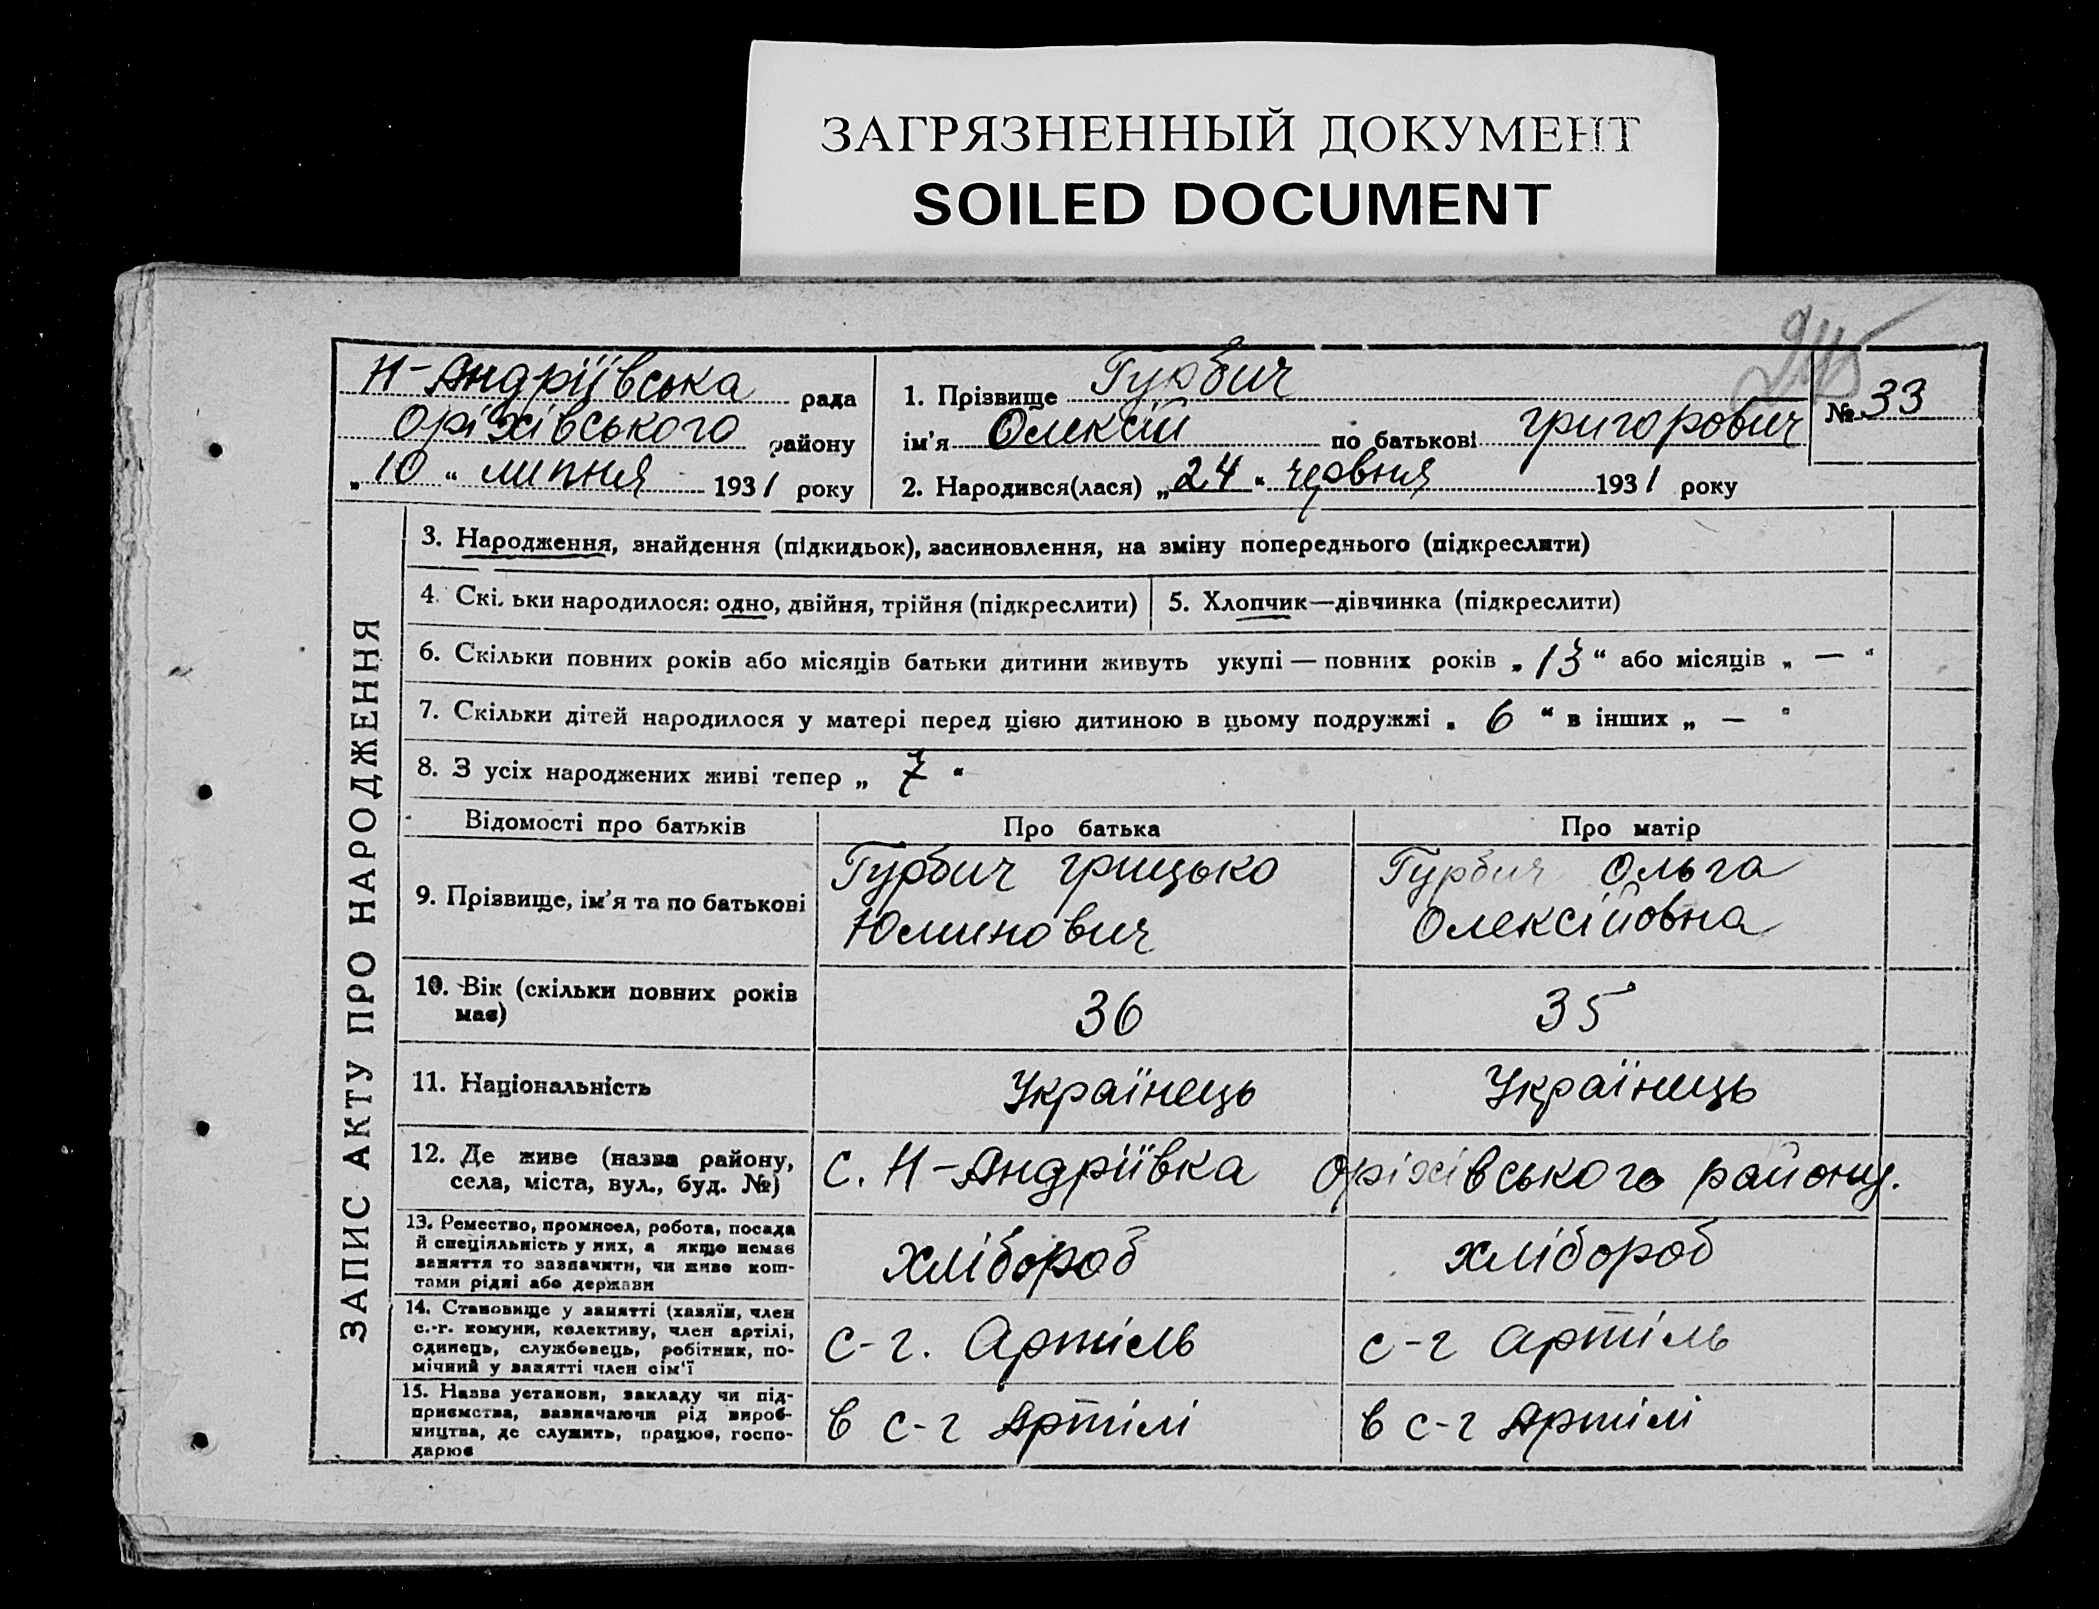 ЗАГРЯЗНЕННЫЙ ДОКУМЕНТ
SOILED DOCUMENT
Н-Андріївська рада
Оріхівського району
„10“ липня 1931 року
1. Прізвище Гурбич
ім'я Олексій по батькові григорович
2. Народився(лася) „24“ червня 1931 року
№ 33
ЗАПИС АКТУ ПРО НАРОДЖЕННЯ
3. Народження, знайдення (підкидьок), засиновлення, на зміну попереднього (підкреслити)
4. Скільки народилося: одно, двійня, трійня (підкреслити)
5. Хлопчик—дівчинка (підкреслити)
6. Скільки повних років або місяців батьки дитини живуть укупі — повних років „13“ або місяців „—“
7. Скільки дітей народилося у матері перед цією дитиною в цьому подружжі „6“ в інших „—“
8. З усіх народжених живі тепер „7“
Відомості про батьків Про батька Про матір
9. Прізвище, ім'я та по батькові
Гурбич грицько
Юминович
Гурбич Ольга
Олексійовна
10. Вік (скільки повних років
має)
36
35
11. Національність
Українець
Українець
12. Де живе (назва району,
села, міста, вул., буд. №)
с. Н-Андріївка Оріхівського району.
13. Ремество, промисел, робота, посада
й спеціяльність у них, а якщо немає
заняття то зазначити, чи живе кош-
тами рідні або держави
хлібороб
хлібороб
14. Становище у занятті (хазяїн, член
с.-г. комуни, колективу, член артілі,
одинець, службовець, робітник, по-
мічний у занятті член сім'ї
с-г. Артіль
с-г артіль
15. Назва установи, закладу чи під-
приємства, зазначаючи рід вироб-
ництва, де служить, працює, госпо-
дарює
в с-г Артілі
в с-г Артілі